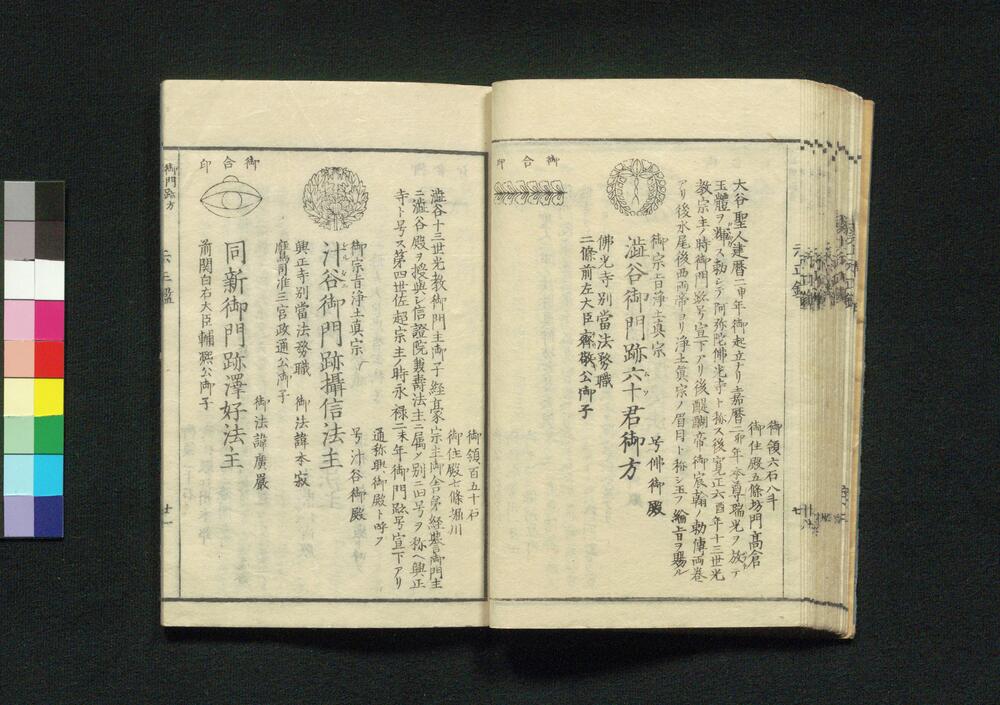 御領六石八斗
御住殿五條坊門高倉
大谷聖人建暦二申年御起立ナリ嘉暦二卯年本尊瑞光ヲ放テ
玉體ヲ輝ス勅シテ阿弥陀佛光寺ト称ス後寛正六酉年十三世光
教宗主ノ時御門跡号宣下アリ後醍醐帝御宸翰ノ勅傳両巻
アリ後水尾後西両帝ヨリ浄土真宗ノ眉目ト称シ玉フ綸旨ヲ賜ル
御宗旨浄土真宗 号佛御殿
澁谷御門跡六十君御方
佛光寺別當法務職
二條前左大臣齊敬公御子
御合印
御領百五十石
御住殿七條堀川
澁谷十三世光教御門主御子経豪宗主御舎弟経誉御門主
ニ澁谷殿ヲ授與シ信證院兼壽法主ニ属ノ別ニ旧号ヲ称ヘ興正
寺ト号ス第四世佐超宗主ノ時永禄二未年御門跡号宣下アリ
通称興御殿ト呼フ
御宗旨浄土真宗 号汁谷御殿
汁谷御門跡攝信法主
興正寺別當法務職 御法諱本寂
鷹司准三宮政通公御子
御法諱廣嚴
同新御門跡澤好法主
前関白右大臣輔熙公御子
御合印
御門跡方
廿一